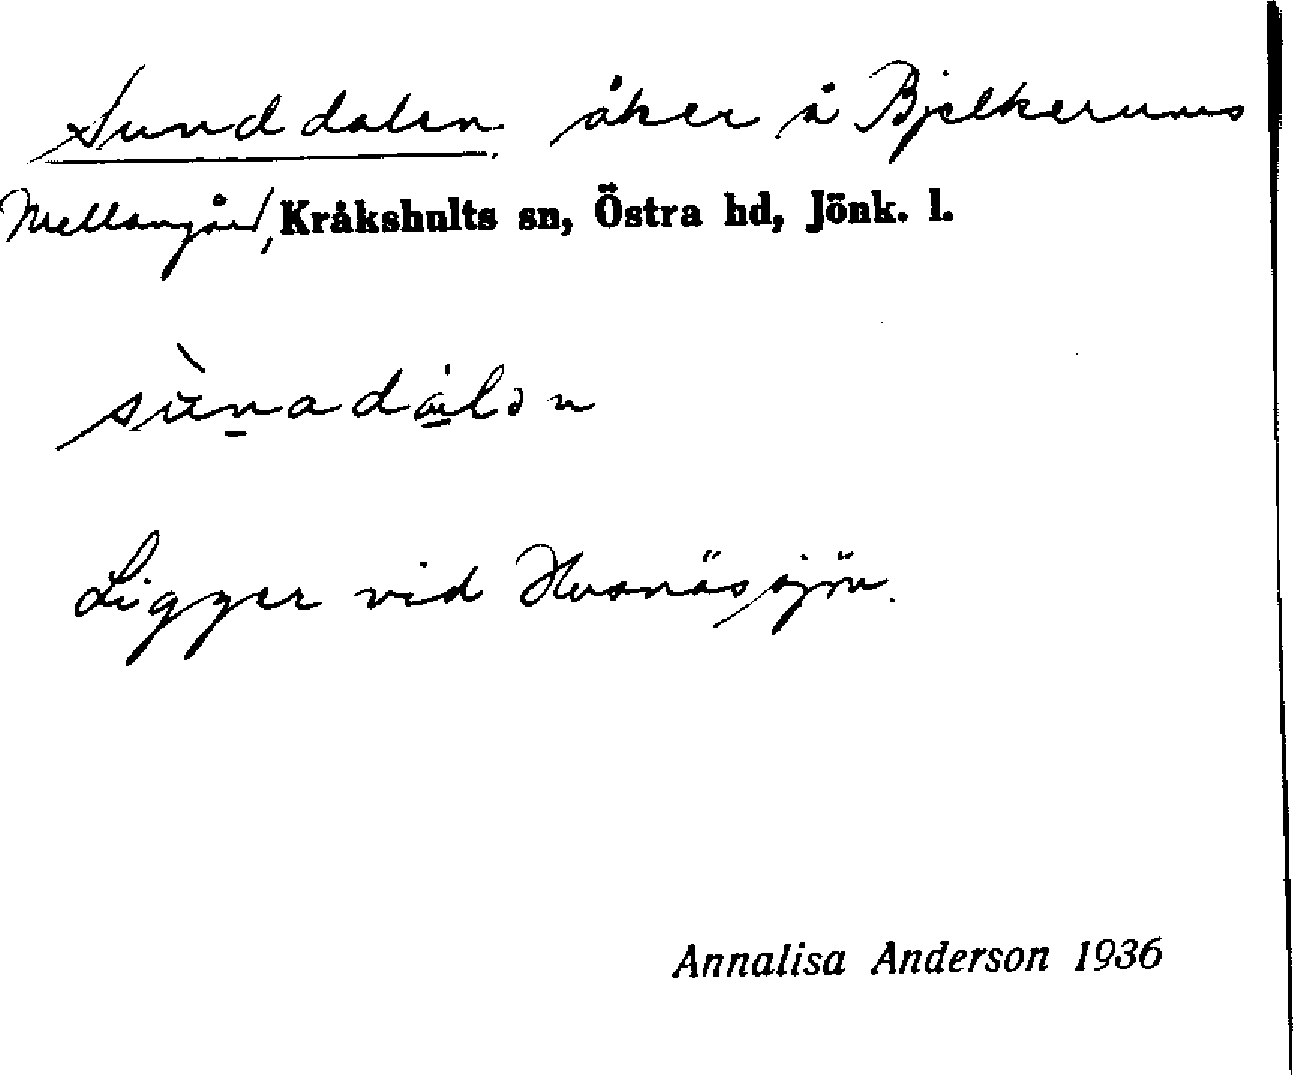 Sunddalen åker å Bjelkerums
Mellangård, Kråkshults sn, Östra hd, Jönk. l.
Ligger vid Hvanässjön.
Annalisa Anderson 1936